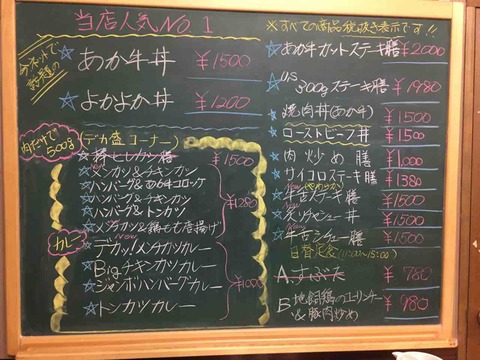 当店人気NO.1
今ネットで
あか牛丼 ¥1500
よかよか丼 ¥1200
肉だけで
500g
(デカ盛コーナー)
棒ヒレカツ膳 ¥1500
メンカツ&チキンカツ
ハンバーグ&あか牛コロッケ
ハンバーグ&チキンカツ
ハンバーグ&トンカツ
メンチカツ&鶏もも唐揚げ
¥1280
カレー
デカッ!メンチカツカレー
Bigチキンカツカレー
ジャンボハンバーグカレー
トンカツカレー
¥1000
※すべての商品税抜き表示です!!
あか牛カットステーキ膳 ¥2000
US 300gステーキ膳 ¥1980
焼肉丼(あか牛) ¥1500
ローストビーフ丼 ¥1500
肉炒め膳 ¥1,000
サイコロステーキ膳 ¥1380
New (やわらか)
牛舌ステーキ膳 ¥1500
炙りシャー丼 ¥1500
New
牛舌シチュー膳 ¥1500
日替定食 (11:00〜15:00)
A.すぶた ¥780
B 地飼鶏の
&豚肉炒め ¥980